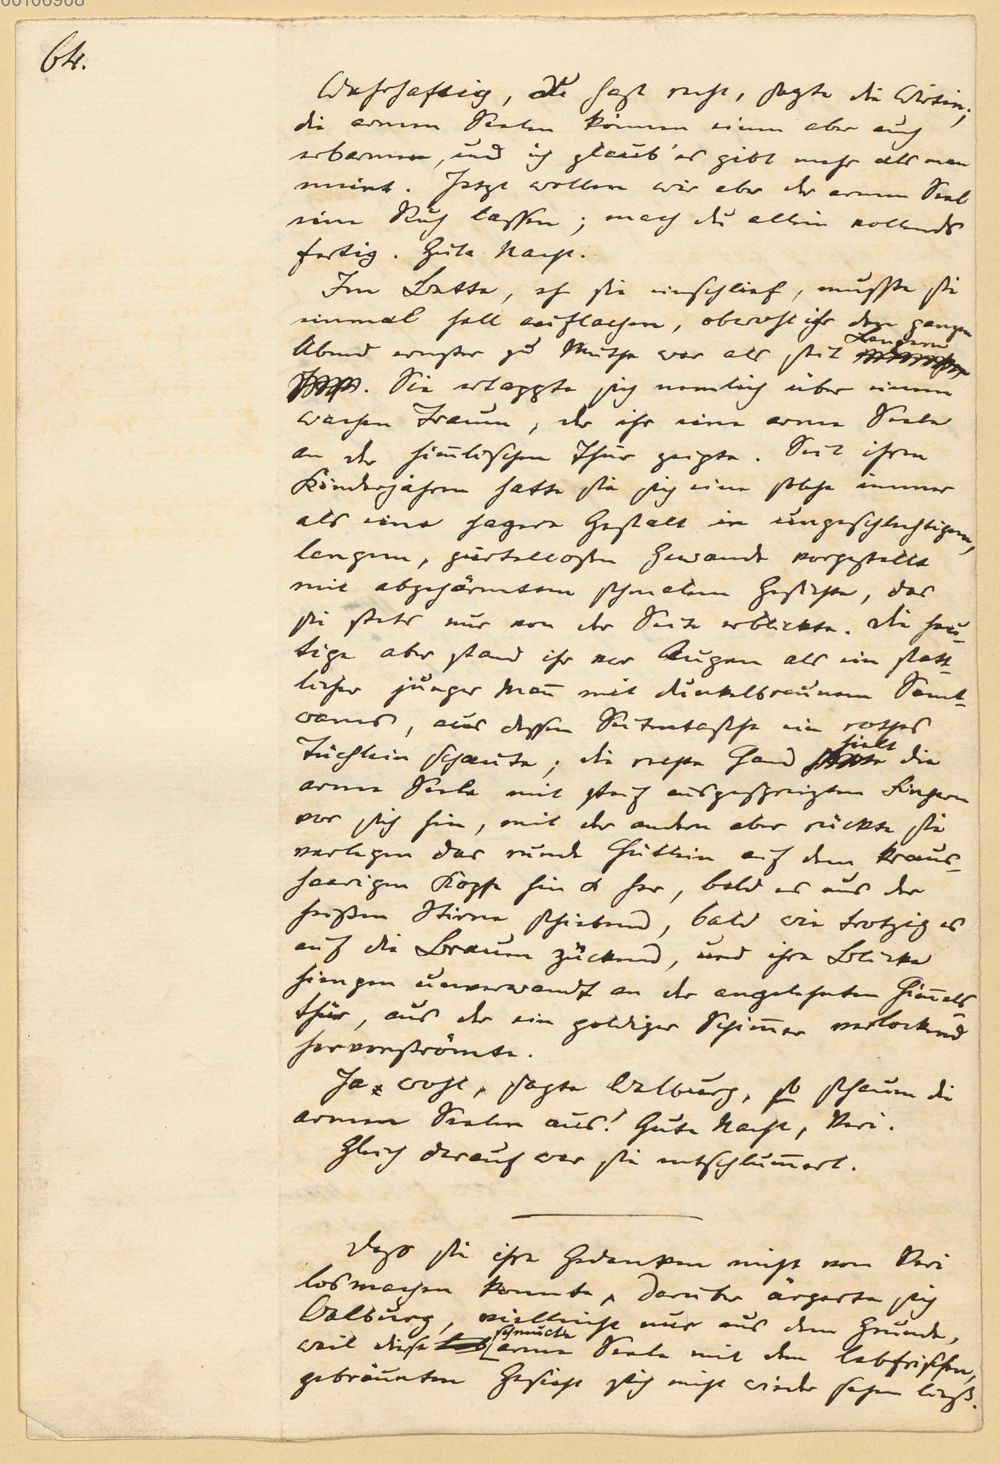 00106908
64.
Wahrhaftig, du hast recht, sagte die Wirtin;
die armen Seelen können einen aber auch
erbarmen, und ich glaub' es gibt mehr als man
meint. Jetzt wollen wir aber der armen Seel
eine Ruh lassen; mach du allein vollends
fertig. Gute Nacht.
Im Bette, eh sie einschlief, mußte sie
einmal hell auflachen, obwohl ihr den ganzen
Abend ernster zu Muthe war als seit Langem
. Sie ertappte sich nemlich über einem
wachen Traum, der ihr eine arme Seele
an der him̅lischen Thür zeigte. Seit ihren
Kinderjahren hatte sie sich eine solche immer
als eine hagere Gestalt in ungeschlachtigem,
langem, gürtellosen Gewande vorgestellt
mit abgehärmtem schmalem Gesichte, das
sie stets nur von der Seite erblickte. Die heu-
tige aber stand ihr vor Augen als ein statt-
licher junger Man̅ mit dunkelbraunem Samt-
wams, aus dessen Seitentasche ein rothes
Tüchlein schaute; die rechte Hand hielt die
arme Seele mit steif ausgespreizten Fingern
vor sich hin, mit der andern aber rückte sie
verlegen das runde Hütlein auf dem kraus-
haarigen Kopfe hin & her, bald es aus der
heißen Stirne schiebend, bald wie trotzig es
auf die Brauen zückend, und ihre Blicke
hiengen unverwandt an der angelehnten Him̅els
thür, aus der ein goldiger Schim̅er verlockend
hervorströmte.
Ja, wohl, sagte Walburg, so schauen die
armen Seelen aus! Gute Nacht, Veri.
Gleich darauf war sie entschlum̅ert.
Daß sie ihre Gedanken nicht von Veri
losmachen konnte, darüber ärgerte sich
Walburg, vielleicht nur aus dem Grunde,
weil diese schmucke arme Seele mit dem lebfrischen,
gebräunten Gesicht sich nicht wieder sehen ließ.